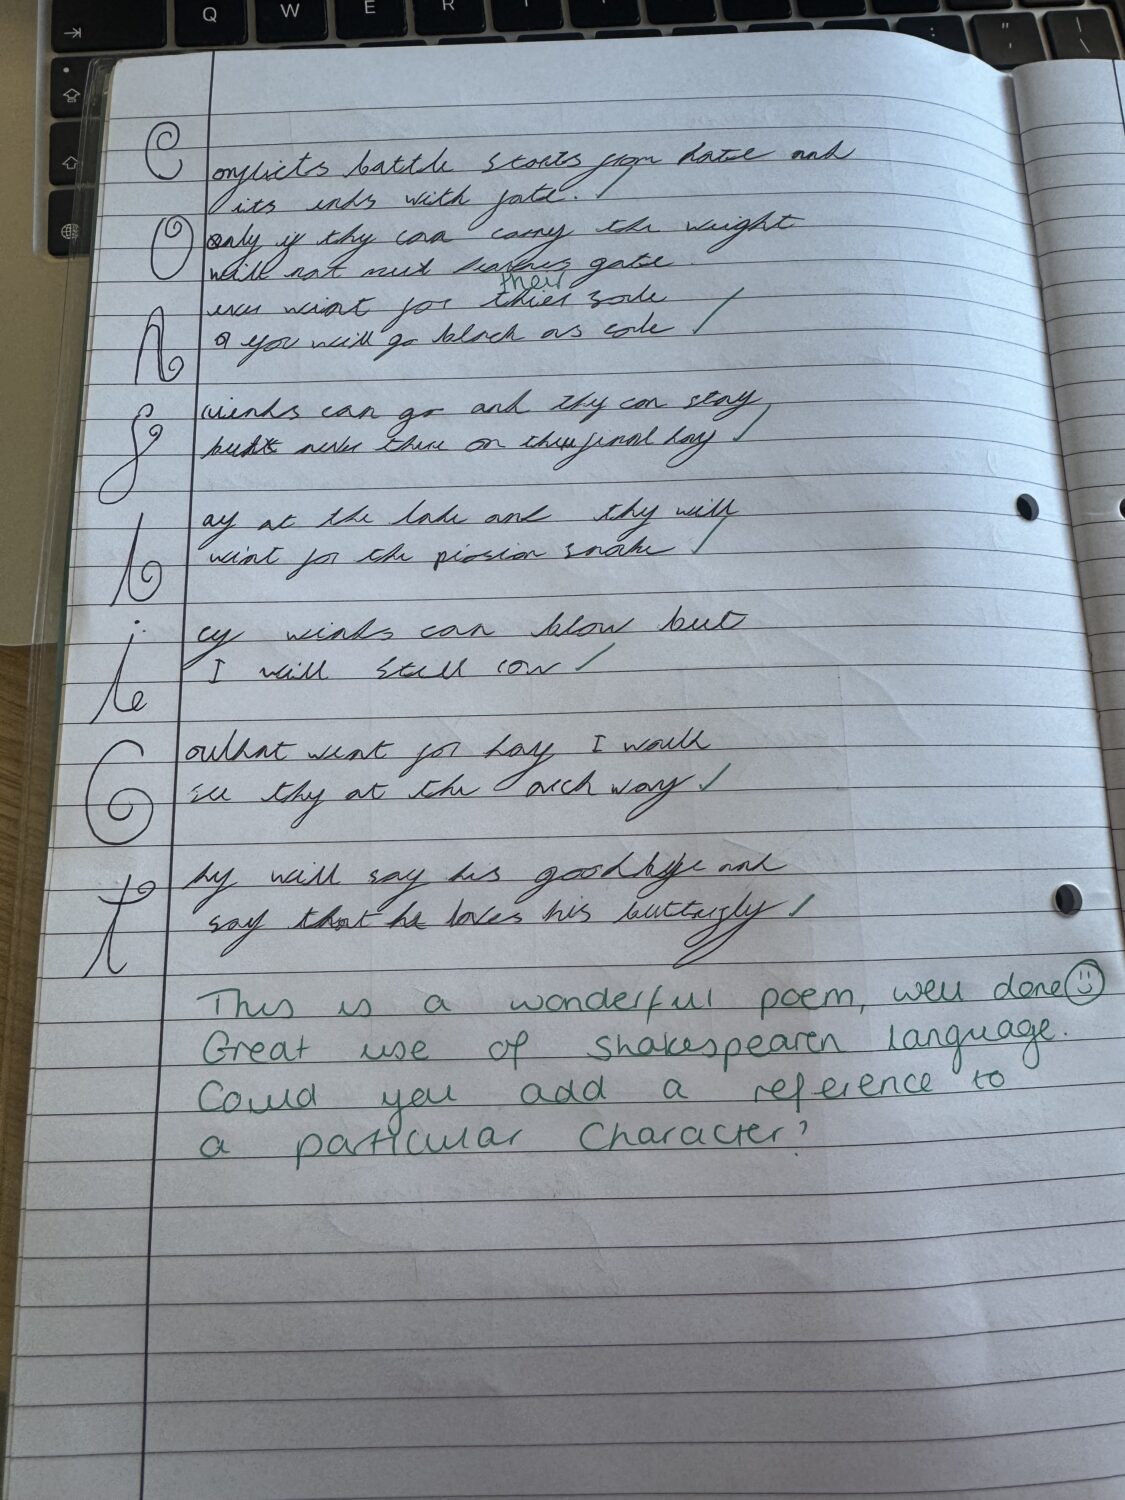 Q W E R
Conflicts battle starts from hate and
its ends with fate.
Only if thy can carry the weight
will not meet heavens gate.
their
Never wait for thier sole
you will go black as cole
friends can go and thy can stay
but never there on the final day
Lay at the lake and thy will
wait for the snake
icy winds can blow but
I will still cow
Couldnt wait for day I would
see thy at the arch way
thy will say his goodbye and
say that he loves his
This is a wonderful poem, well done
Great use of Shakespearen language.
Could you add a reference to
a particular Character?